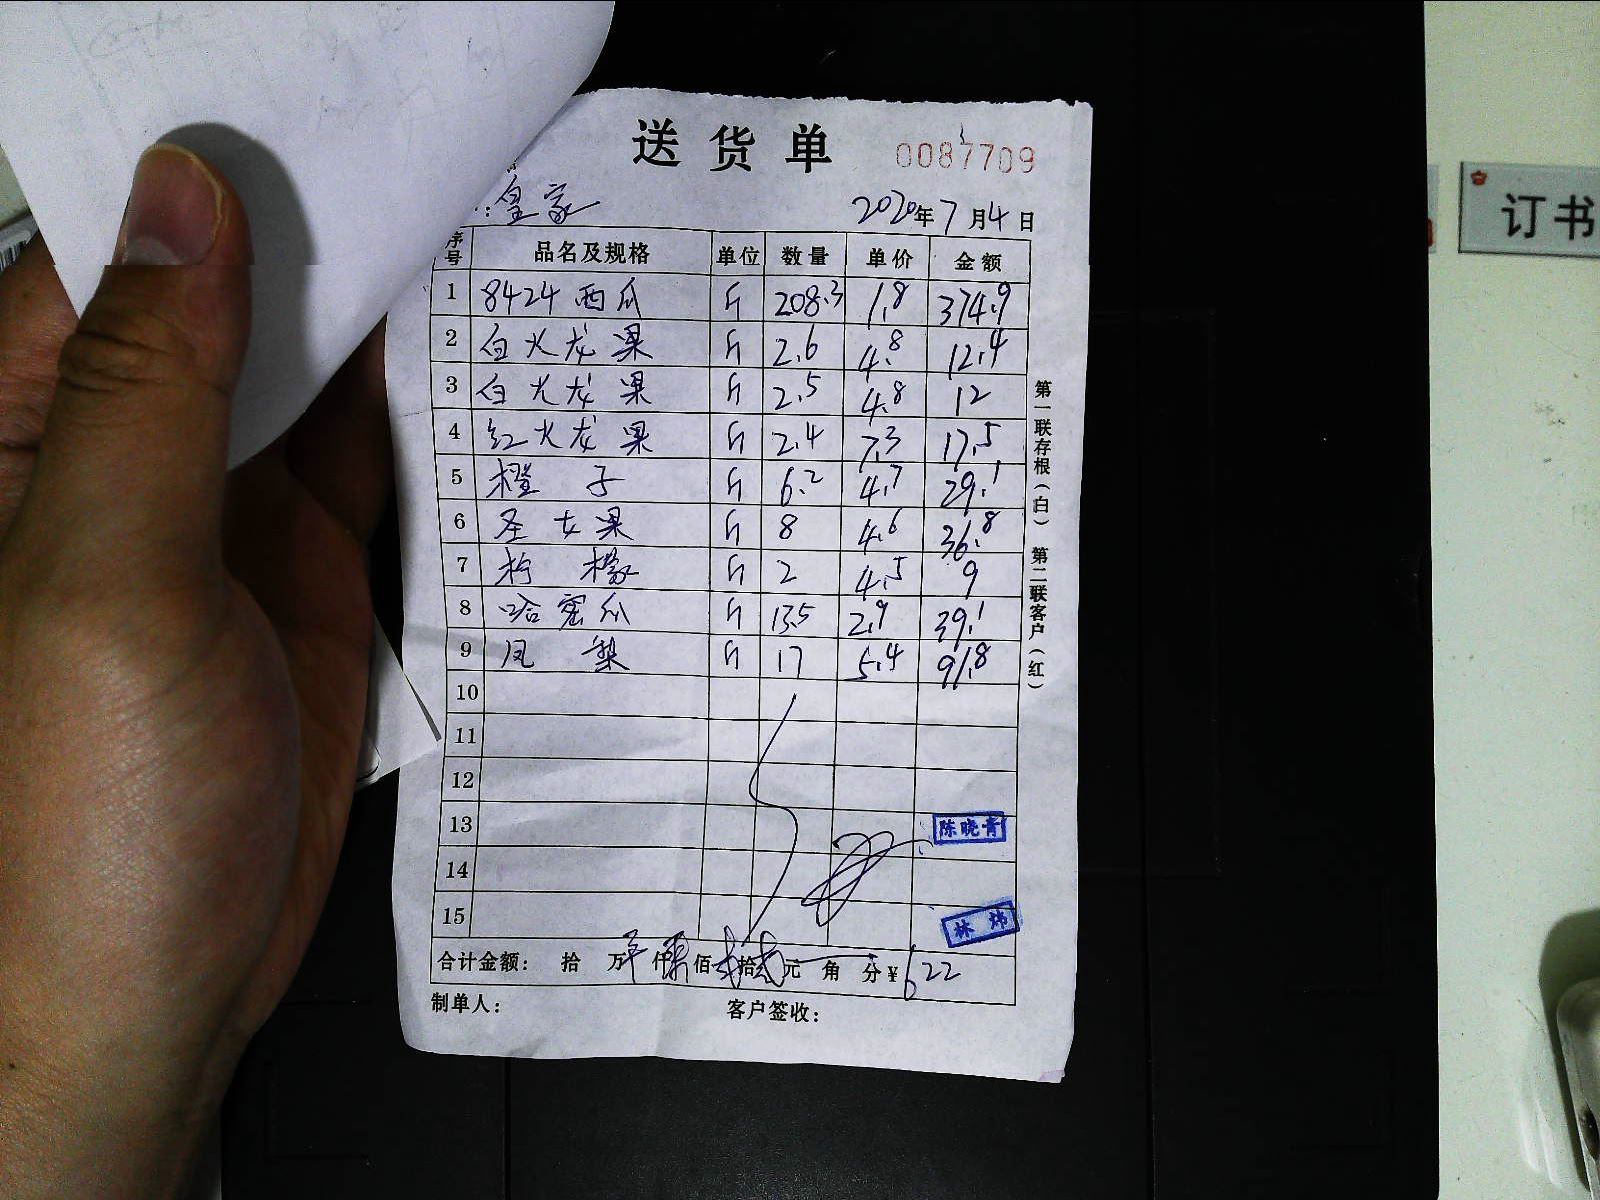 送货单 0087709
: 皇家 2020年7月4日
序号 品名及规格 单位 数量 单价 金额
1 8424西瓜 斤 208.3 1.8 374.9
2 白火龙果 斤 2.6 4.8 12.4
3 白火龙果 斤 2.5 4.8 12
4 红火龙果 斤 2.4 7.3 17.5
5 橙子 斤 6.2 4.7 29.1
6 圣女果 斤 8 4.6 36.8
7 柠檬 斤 2 4.5 9
8 哈密瓜 斤 13.5 2.9 39.1
9 凤梨 斤 17 5.4 91.8
10
11
12
13 陈晓青
14
15 林炜
合计金额: 拾 万 仟 佰 拾 元 角 分 ¥622
制单人: 客户签收:
第一联存根(白) 第二联客户(红)
订书